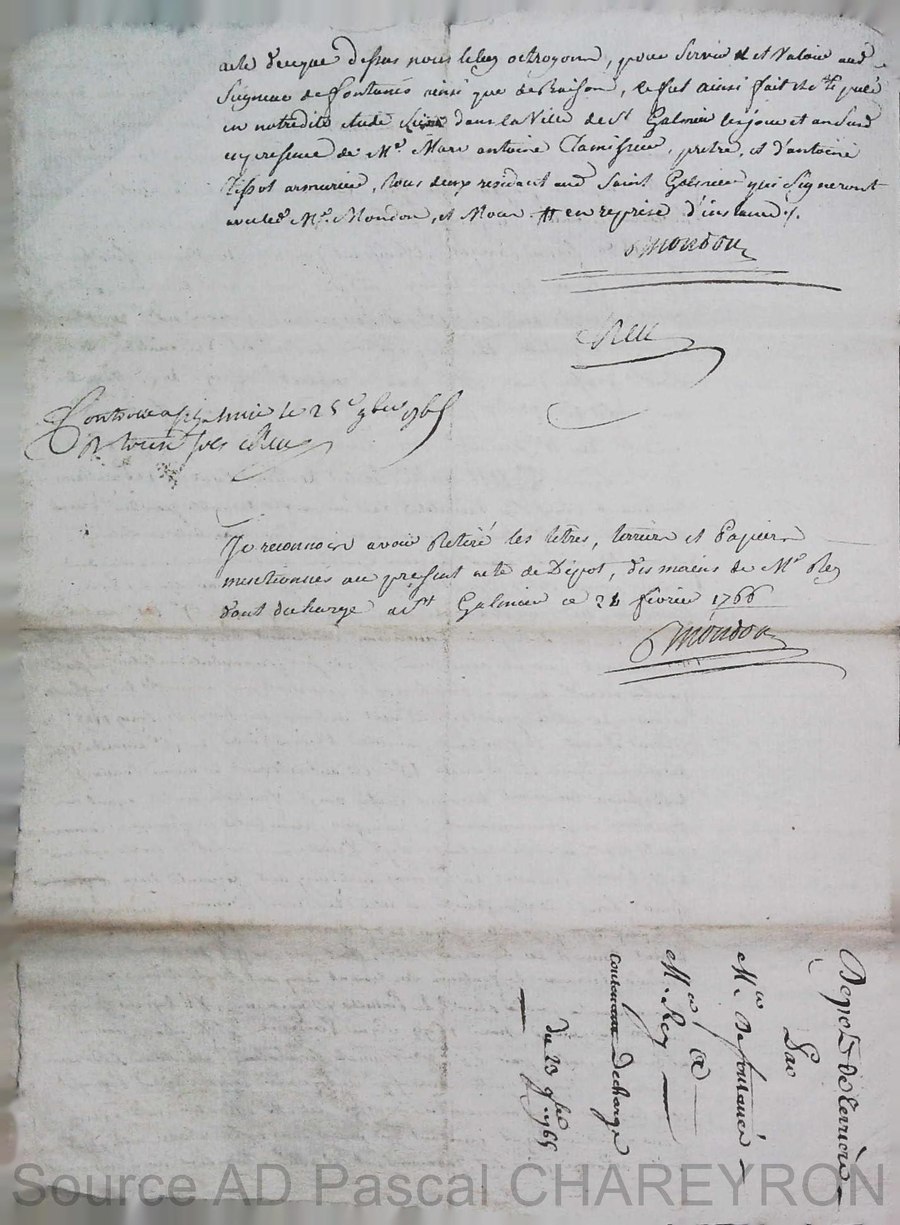 acte de ce que dessus nous leur octroyons, pour servir et valoir aud
Seigneur de fontanès ainsi que de Raison, ce fut ainsi fait
en notredite étude dans la Ville de St Galmier les jour et an susd
en presence de Mr. Marc antoine prêtre, et d'antoine
tissot armurier, tous deux residant aud Saint Galmier qui signeront
avec led. Mr. Mondon, et Nous # en reprise
Mondon
Rey
a St galmier le 25e 9bre 1765
R
Je reconnois avoir Retiré les lettres, terriers et Papiers
mentionnés au présent acte de Dépot, des mains de Mr Rey
dont decharge a St Galmier ce 24 février 1766
Mondon
Depot de terriers
Par
Mre De fontanès
a
Mre Rey
contenant Decharge
du 23 9bre 1765
Source AD Pascal CHAREYRON